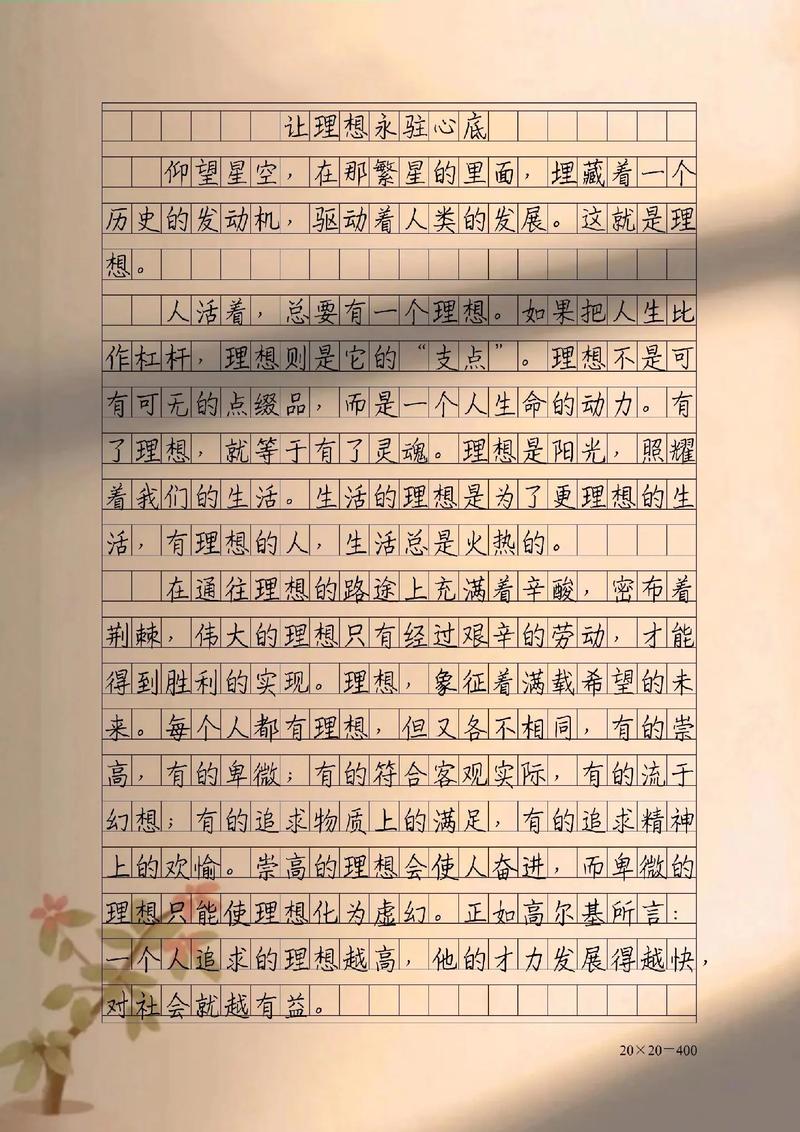 让理想永驻心底
仰望星空，在那繁星的里面，埋藏着一个
历史的发动机，驱动着人类的发展。这就是理
想。
人活着，总要有一个理想。如果把人生比
作杠杆，理想则是它的“支点”。理想不是可
有可无的点缀品，而是一个人生命的动力。有
了理想，就等于有了灵魂。理想是阳光，照耀
着我们的生活。生活的理想是为了更理想的生
活，有理想的人，生活总是火热的。
在通往理想的路途上充满着辛酸，密布着
荆棘，伟大的理想只有经过艰辛的劳动，才能
得到胜利的实现。理想，象征着满载希望的未
来。每个人都有理想，但又各不相同，有的崇
高，有的卑微；有的符合客观实际，有的流于
幻想；有的追求物质上的满足，有的追求精神
上的欢愉。崇高的理想会使人奋进，而卑微的
理想只能使理想化为虚幻。正如高尔基所言：
一个人追求的理想越高，他的才力发展得越快，
对社会就越有益。
20×20－400